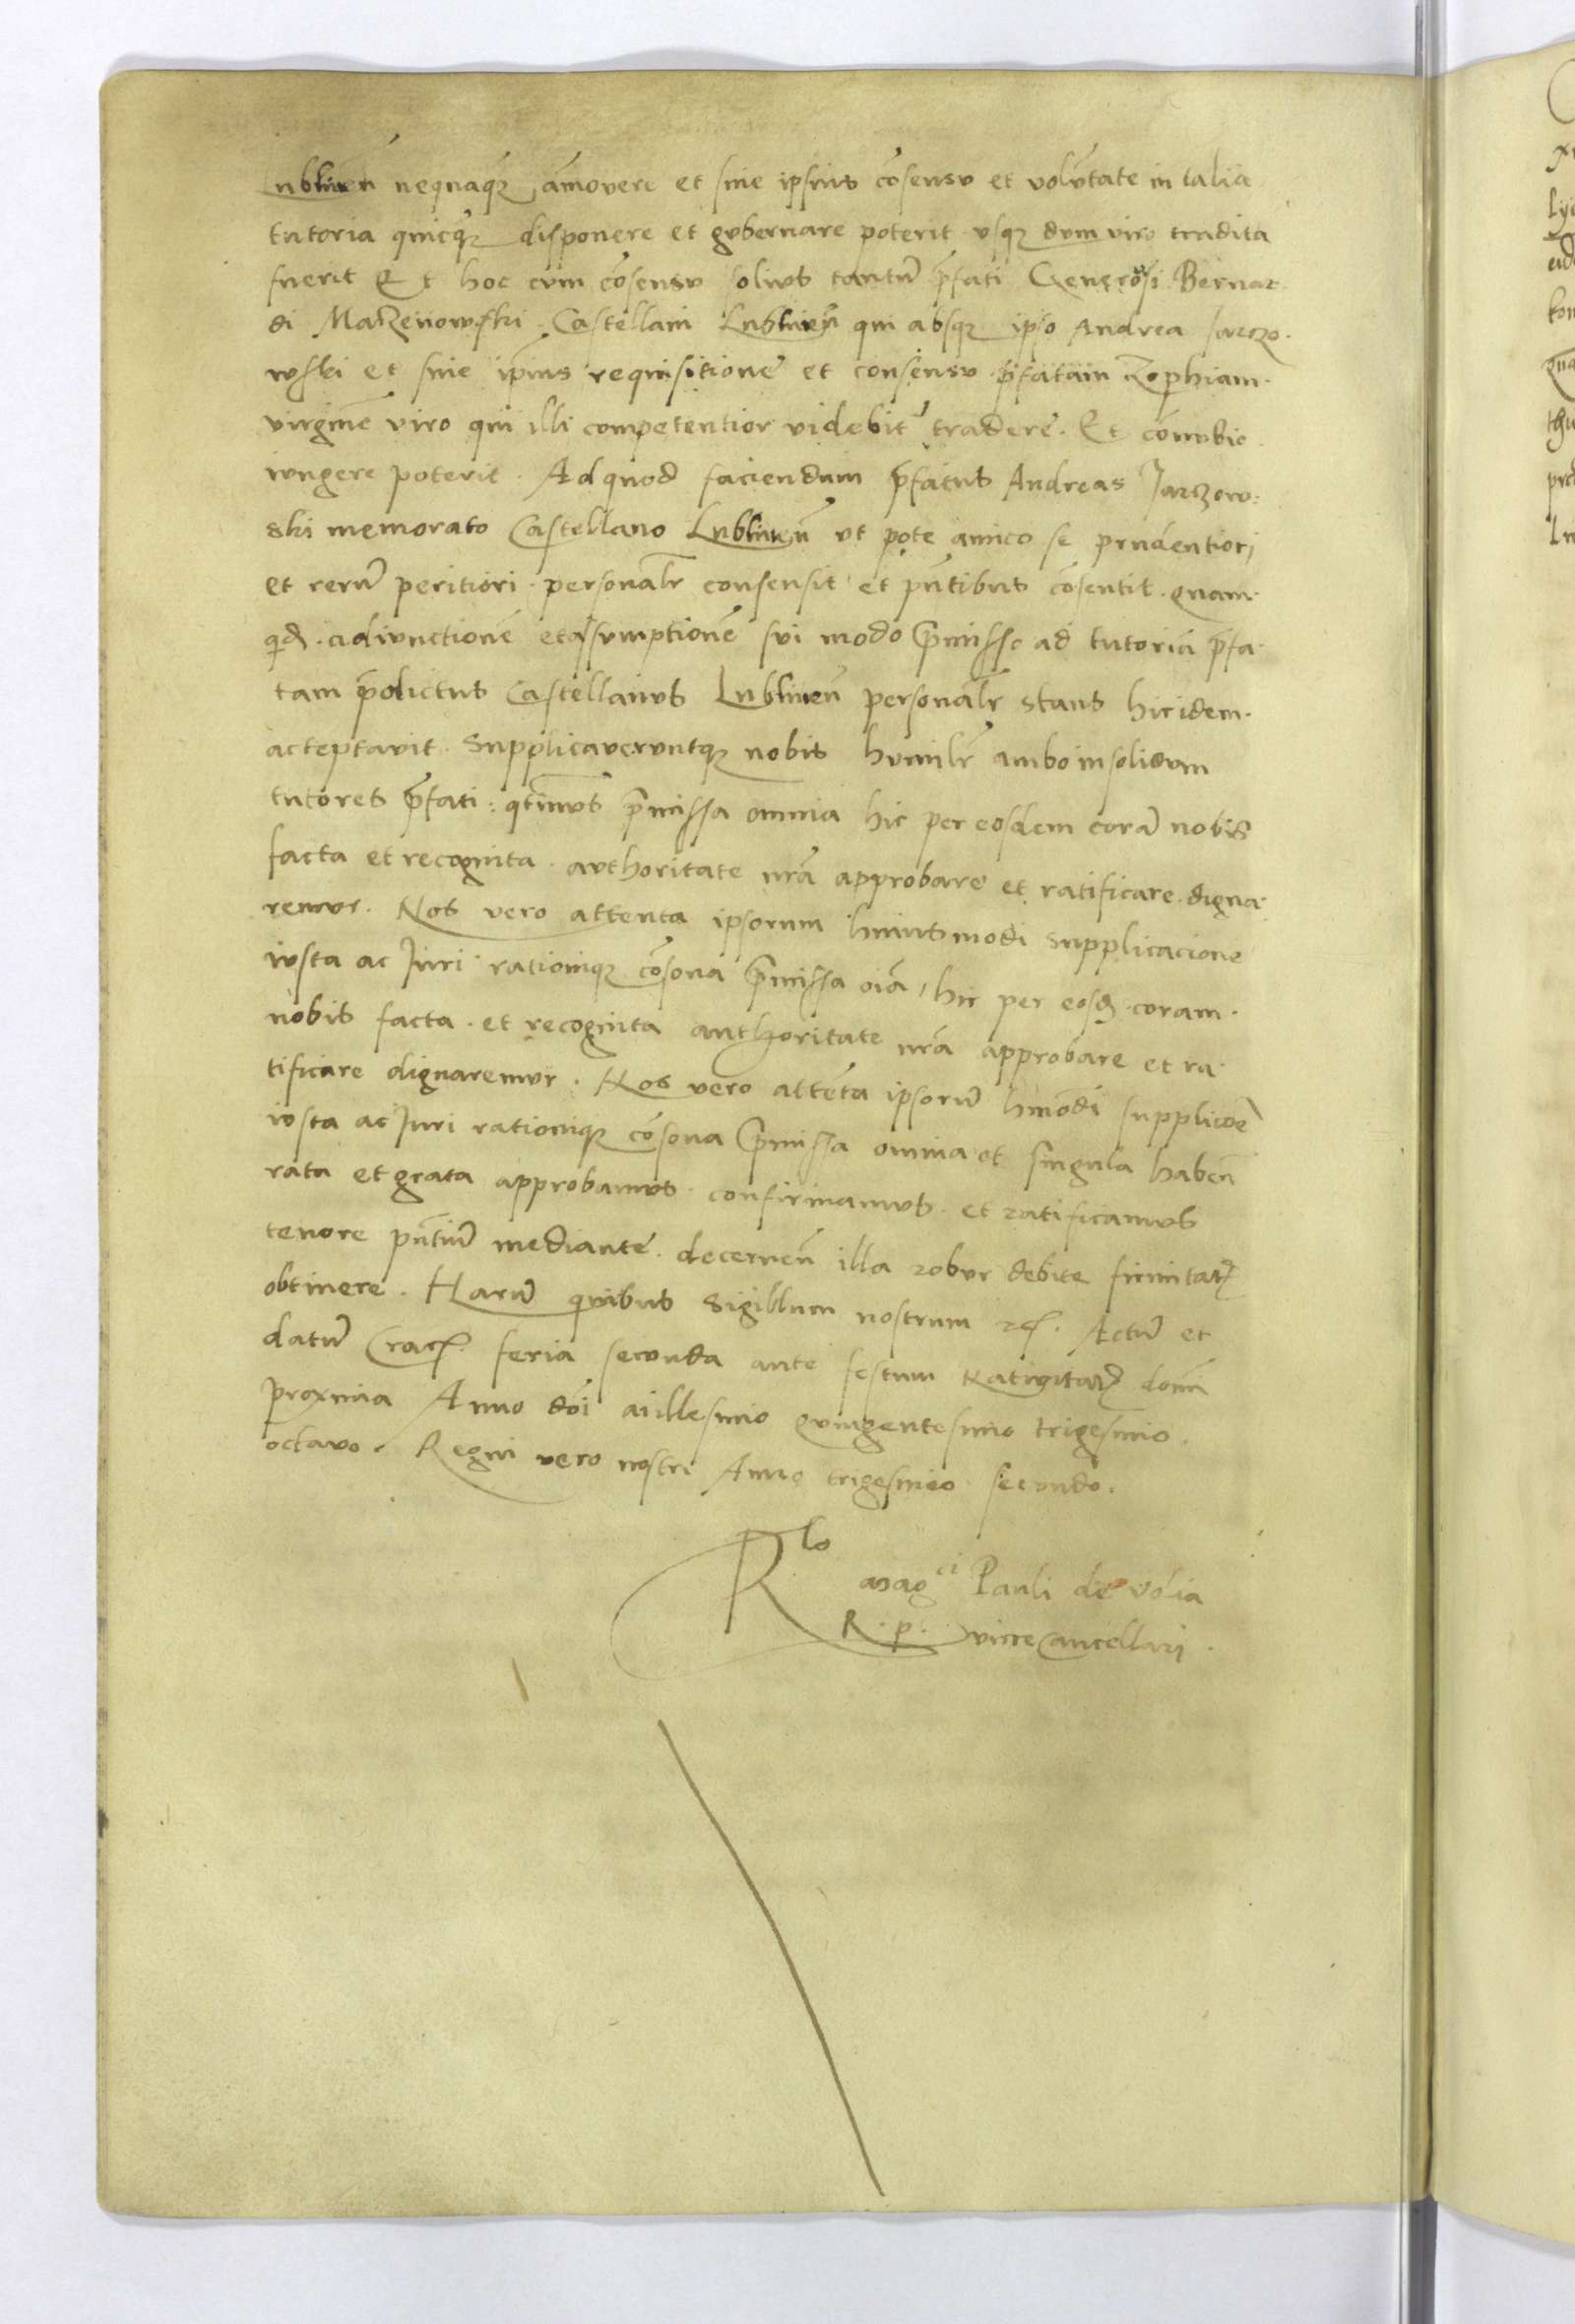 Lublineñ nequaq̃ am̃overe et sine ipsius cõsensu et volũtate in talia
tutoria quicq̃ disponere et gubernare poterit usq̃ dum viro tradita
fuerit Et hoc cum cõsensu solius tantũ p̃fati Generosi Bernar
di Maczeiowski Castellani Lublineñ qui absq̃ ipso Andrea Jarczo.
wski et sine ip̃ius requisitione et consensu p̃fatam Zophiam.
virginẽ viro qui illi competentior videbit̃ tradere. Et cõnubio
iungere poterit. Ad quod faciendum p̃fatus Andreas Jarczow:
ski memorato Castellano Lublineñ ut pote amico se prudentiori
et rerũ peritiori. personalr̃ consensit et pñtibus cõsentit. quam.
qd̃. adiunctionẽ et assumptionẽ sui modo p̃misso ad tutoriã p̃fa.
tam p̃dictus Castellanus Lublineñ personalr̃ stans hic idem.
acceptavit. Supplicaveruntq̃ nobis humilr̃ ambo in solidum
tutores p̃fati: q̃tinus p̃missa omnia hic per eosdem corã nobis
facta et recognita. authoritate nr̃a approbare et ratificare digna
remur. Nos vero attenta ipsorum huiusmodi supplicacione
iusta ac Juri rationiq̃ cõsona p̃missa oĩa, hic per eosd̃. coram.
nobis facta. et recognita authoritate nr̃a approbare et ra
tificare dignaremur. Nos vero attẽta ipsorũ hm̃õdi supplicõe
iusta ac Juri rationiq̃ cõsona p̃missa omnia et singula habeñ
rata et grata approbamus. confirmamus. et ratificamus
tenore pñtiũ mediante. decerneñ illa robur debite firmitat̃
obtinere. Harũ quibus Sigillum nostrum rc̃. Actũ et
datũ Crac̃. feria secunda ante festum Nativitat̃ domĩ
proxima Anno dõi Millesimo quingentesimo trigesimo.
octavo. Regni vero nostri Anno trigesimo secundo.
Rlo Magci Pauli de volia
R. p. vicecancellarj.